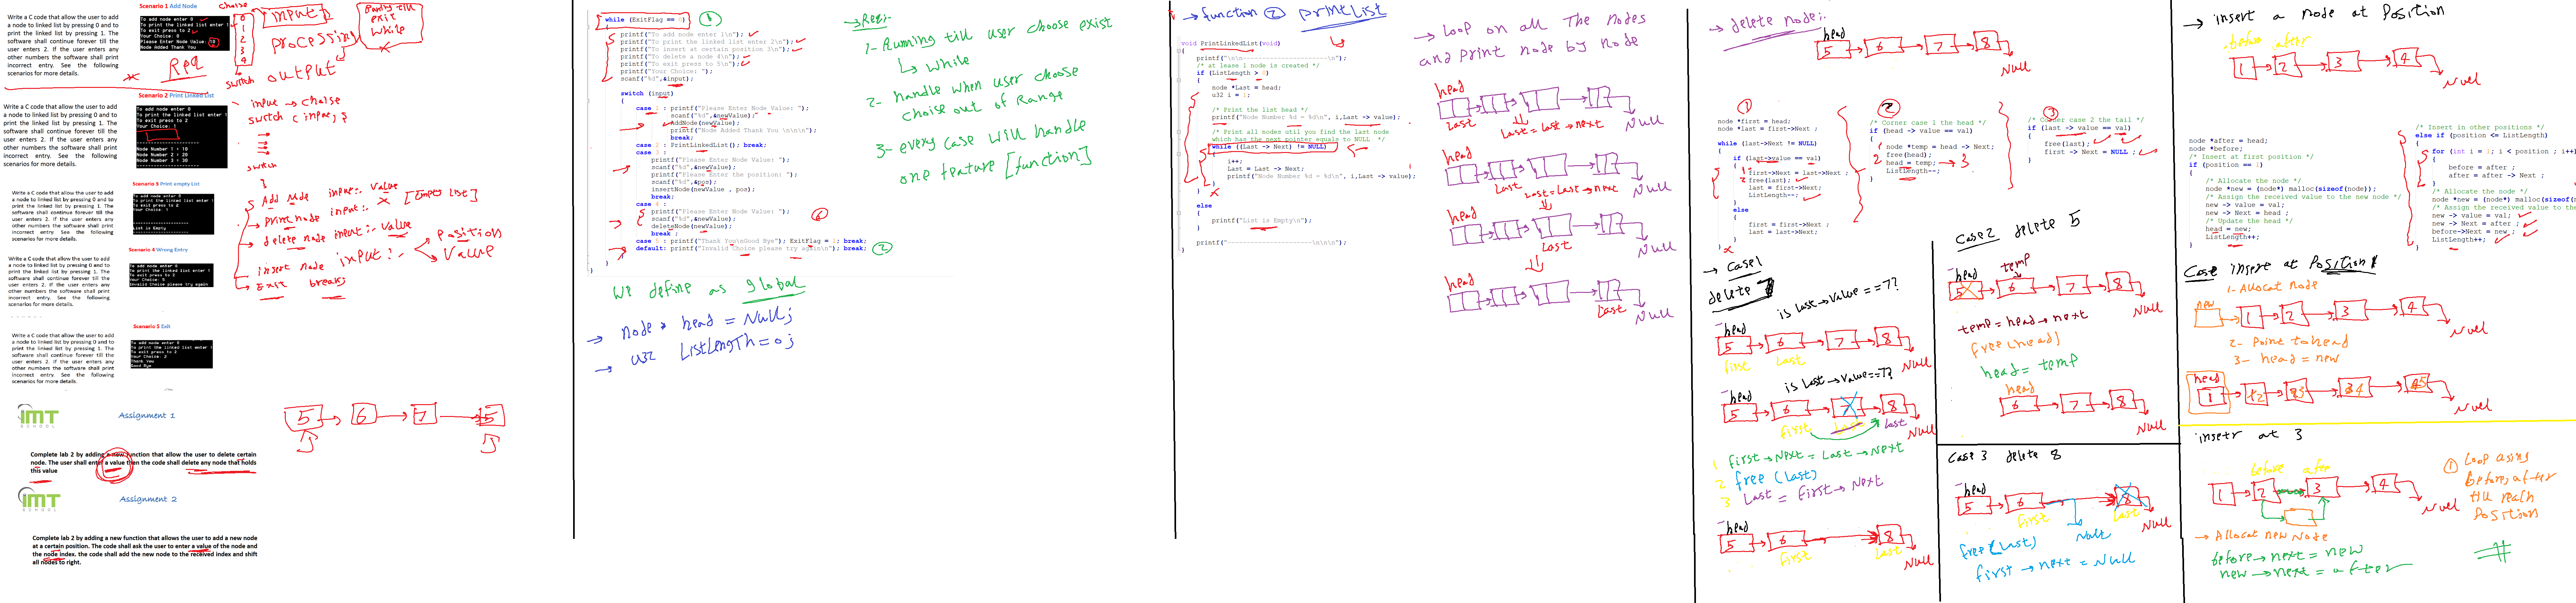 Write a C code that allow the user to add
a node to linked list by pressing 0 and to
print the linked list by pressing 1. The
software shall continue forever till the
user enters 2. If the user enters any
other numbers the software shall print
incorrect entry. See the following
scenarios for more details.
Scenario 1 Add Node
To add node enter 0
To print the linked list enter 1
To exit press to 2
Your Choice: 0
Please Enter Node Value: 10
Node Added Thank You
choise
0
1
2
3
4
switch
input
processing
output
Running till
exit
while
Req
Write a C code that allow the user to add
a node to linked list by pressing 0 and to
print the linked list by pressing 1. The
software shall continue forever till the
user enters 2. If the user enters any
other numbers the software shall print
incorrect entry. See the following
scenarios for more details.
Scenario 2 Print Linked List
To add node enter 0
To print the linked list enter 1
To exit press to 2
Your Choice: 1
Node Number 1 = 10
Node Number 2 = 20
Node Number 3 = 30
input → choise
switch ( input ) {
switch
}
Write a C code that allow the user to add
a node to linked list by pressing 0 and to
print the linked list by pressing 1. The
software shall continue forever till the
user enters 2. If the user enters any
other numbers the software shall print
incorrect entry. See the following
scenarios for more details.
Scenario 3 Print empty List
To add node enter 0
To print the linked list enter 1
To exit press to 2
Your Choice: 1
List is Empty
Add Node input:- value
print node input:- x [Empty list]
delete node input:- value
insert node input:-
Position
Value
Exit break;
Write a C code that allow the user to add
a node to linked list by pressing 0 and to
print the linked list by pressing 1. The
software shall continue forever till the
user enters 2. If the user enters any
other numbers the software shall print
incorrect entry. See the following
scenarios for more details.
Scenario 4 Wrong Entry
To add node enter 0
To print the linked list enter 1
To exit press to 2
Invalid Choice please try again
Write a C code that allow the user to add
a node to linked list by pressing 0 and to
print the linked list by pressing 1. The
software shall continue forever till the
user enters 2. If the user enters any
other numbers the software shall print
incorrect entry. See the following
scenarios for more details.
Scenario 5 Exit
To add node enter 0
To print the linked list enter 1
To exit press to 2
Your Choice: 2
Thank You
Good Bye
IMT
SCHOOL
Assignment 1
5 6 7 5
Complete lab 2 by adding a new function that allow the user to delete certain
node. The user shall enter a value then the code shall delete any node that holds
this value
IMT
SCHOOL
Assignment 2
Complete lab 2 by adding a new function that allows the user to add a new node
at a certain position. The code shall ask the user to enter a value of the node and
the node index. the code shall add the new node to the received index and shift
all nodes to right.
while (ExitFlag == 0)
{
printf("To add node enter 1\n");
printf("To print the linked list enter 2\n");
printf("To insert at certain position 3\n");
printf("To delete a node 4\n");
printf("To exit press to 5\n");
printf("Your Choice: ");
scanf("%d",&input);
switch (input)
{
case 1 : printf("Please Enter Node Value: ");
scanf("%d",&newValue);
AddNode(newValue);
printf("Node Added Thank You \n\n\n");
break;
case 2 : PrintLinkedList(); break;
case 3 :
printf("Please Enter Node Value: ");
scanf("%d",&newValue);
printf("Please Enter the position: ");
scanf("%d",&pos);
insertNode(newValue , pos);
break;
case 4 :
printf("Please Enter Node Value: ");
scanf("%d",&newValue);
deleteNode(newValue);
break ;
case 5 : printf("Thank You\nGood Bye"); ExitFlag = 1; break;
default: printf("Invalid Choice please try again\n"); break;
}
}
→ Req:-
1- Running till user choose exist
↳ while
2- handle when user choose
choise out of Range
3- every case will handle
one feature [function]
we define as global
→ node * head = Null;
→ u32 ListLength = 0;
→ function 2 printList
void PrintLinkedList(void)
{
printf("\n\n-----------------------\n");
/* at lease 1 node is created */
if (ListLength > 0)
{
node *Last = head;
u32 i = 1;
/* Print the list head */
printf("Node Number %d = %d\n", i,Last -> value);
/* Print all nodes util you find the last node
which has the next pointer equals to NULL */
while ((Last -> Next) != NULL)
{
i++;
Last = Last -> Next;
printf("Node Number %d = %d\n", i,Last -> value);
}
}
else
{
printf("List is Empty\n");
}
printf("-----------------------\n\n\n");
}
→ Loop on all The nodes
and print node by node
head
Last
Last = Last → next
Null
head
Last
Last = Last → next
Null
head
Last
Null
head
Last
Null
→ delete node:-
head
5 6 7 8
Null
1
node *first = head;
node *last = first->Next ;
while (last->Next != NULL)
{
if (last->value == val)
{
first->Next = last->Next ;
free(last);
last = first->Next;
ListLength--;
}
else
{
first = first->Next ;
last = last->Next;
}
}
2
/* Corner case 1 the head */
if (head -> value == val)
{
node *temp = head -> Next;
free(head);
head = temp;
ListLength--;
}
3
/* Corner case 2 the tail */
if (last -> value == val)
{
free(last);
first -> Next = NULL ;
}
→ Case 1
delete 7
is Last→Value == 7?
head
5 6 7 8
first Last
Null
is Last→Value == 7?
head
5 6 7 8
first Last Last
Null
1 first→Next = Last→Next
2 free (Last)
3 Last = First→Next
head
5 6 8
first Last
Null
Case 2 delete 5
head temp
5 6 7 8
Null
temp = head→next
free(head)
head = temp
head
6 7 8
Null
Case 3 delete 8
head
5 6 8
first Last
Null
Null
free(Last)
first→next = Null
→ insert a node at Position
before after
1 2 3 4
Null
node *after = head;
node *before;
/* Insert at first position */
if (position == 1)
{
/* Allocate the node */
node *new = (node*) malloc(sizeof(node));
/* Assign the received value to the new node */
new -> value = val;
new -> Next = head ;
/* Update the head */
head = new;
ListLength++;
}
/* Insert in other positions */
else if (position <= ListLength)
{
for (int i = 1; i < position ; i++)
{
before = after ;
after = after -> Next ;
}
/* Allocate the node */
node *new = (node*) malloc(sizeof(
/* Assign the received value to the
new -> value = val;
new -> Next = after ;
before->Next = new ;
ListLength++;
}
Case insert at Position 1
1- Allocat Node
new
1 2 3 4
Null
2- Point to head
3- head = new
head
1
Null
insetr at 3
before after
1 2 3 4
Null
→ Allocat new Node
before→next = new
new→next = after
1 Loop assing
before, after
till reach
Position